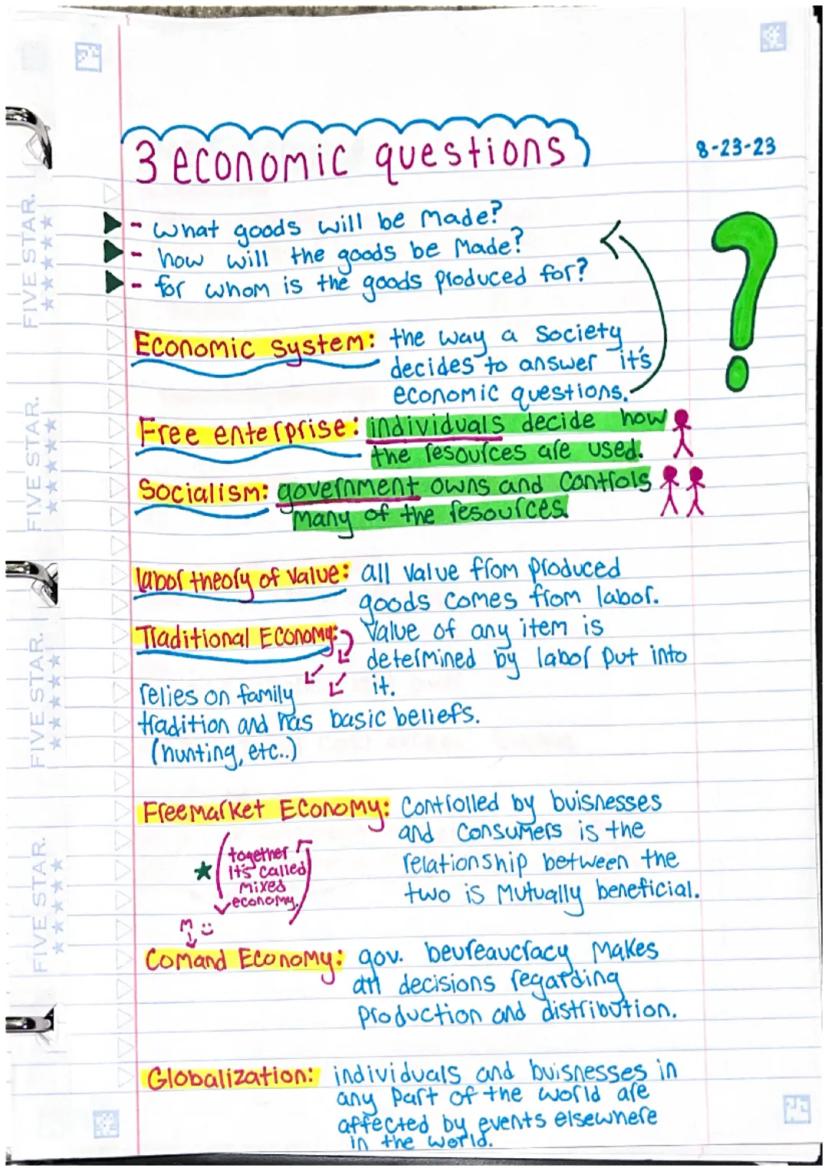 3 economic questions
8-23-23
- what goods will be made?
- how will the goods be made?
- for whom is the goods produced for?
?
Economic system: the way a society
decides to answer it's
economic questions.
Free enterprise: individuals decide how
the resources are used.
Socialism: government owns and controls
many of the resources.
labor theory of value: all value from produced
goods comes from labor.
Traditional Economy: value of any item is
determined by labor put into
it.
relies on family
tradition and has basic beliefs.
(hunting, etc..)
Freemarket Economy: controlled by buisnesses
and consumers is the
relationship between the
two is mutually beneficial.
together
it's called
mixed
economy.
m :)
Comand Economy: gov. beureaucracy makes
all decisions regarding
production and distribution.
Globalization: individuals and buisnesses in
any part of the world are
affected by events elsewhere
in the world.
FIVE STAR.
FIVE STAR.
FIVE STAR.
FIVE STAR.